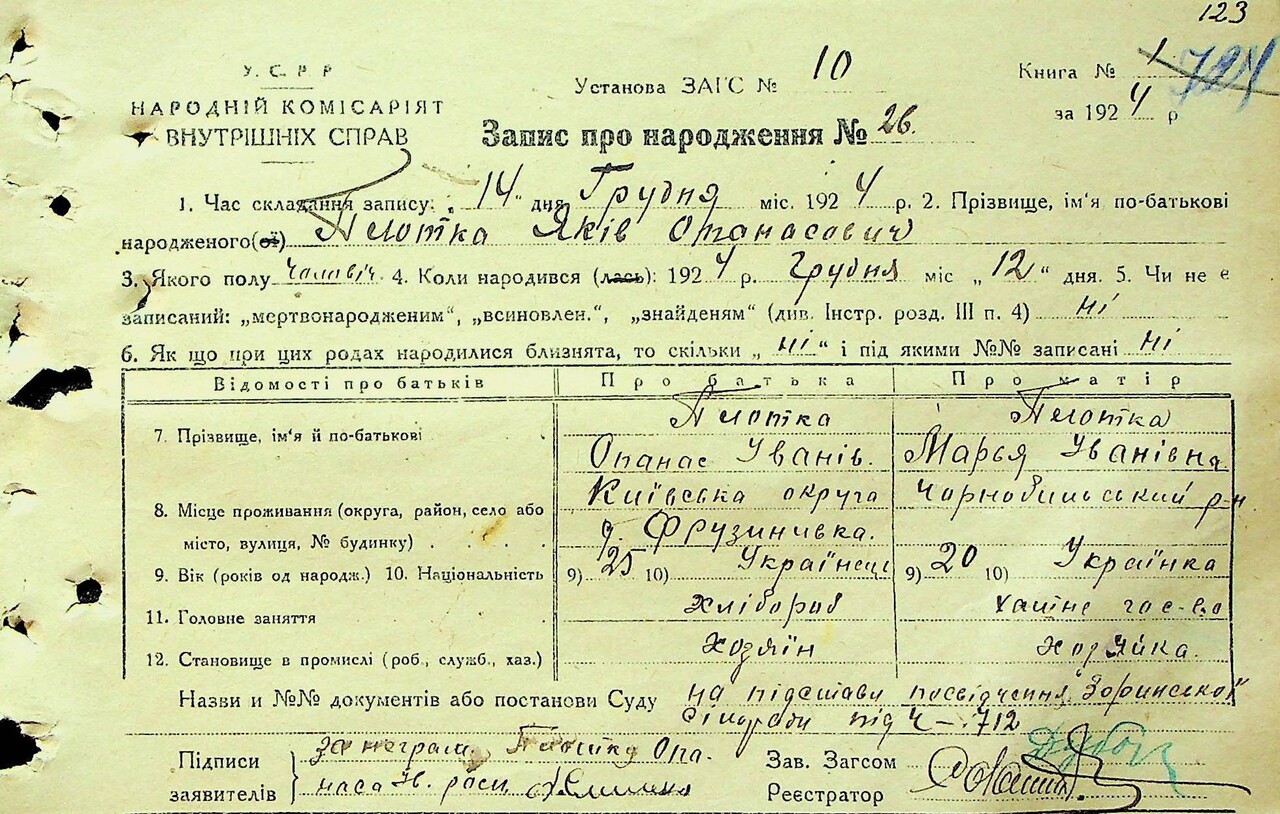 123
У. С. Р. Р.
НАРОДНІЙ КОМІСАРІЯТ
ВНУТРІШНІХ СПРАВ
Установа ЗАГС № 10
Книга № 1 724
за 1924 р
Запис про народження № 26.
1. Час складання запису: „14“ дня Грудня міс. 1924 р. 2. Прізвище, ім'я по-батькові
народженого(ої) Плотка Яків Опанасович
3. Якого полу чоловіч 4. Коли народився (лась): 1924 р. Грудня міс „12“ дня. 5. Чи не є
записаний: „мертвонародженим“, „всиновлен.“, „знайденям“ (див. Інстр. розд. III п. 4) ні
6. Як що при цих родах народилися близнята, то скільки „ні“ і під якими №№ записані ні
Відомості про батьків Про батька Про матір
7. Прізвище, ім'я й по-батькові Плотка Плотка
Опанас Уванів. Марья Уванівна
8. Місце проживання (округа, район, село або Київська округа Чорнобильський р-н
місто, вулиця, № будинку) . . . . . д. Фрузинивка.
9. Вік (років од народж.) 10. Національність 9) 25 10) Українець 9) 20 10) Українка
11. Головне заняття Хлібороб хатне гос-во
12. Становище в промислі (роб., служб., хаз.) Хозяїн хозяйка.
Назви и №№ документів або постанови Суду на підстави посвідчення Зоринської
сільради під Ч - 712
Підписи за неграм. Плотку Опа.
заявителів наса
Зав. Загсом
Реєстратор